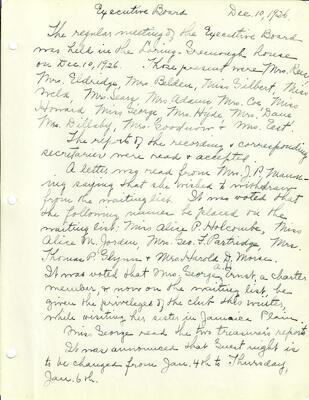 Executive Board Dec. 10, 1926.
The regular meeting of the Executive Board
was held in the Loring-Greenough house
on Dec. 10, 1926. Those present were Mrs. Rice
Mrs. Eldridge, Mrs Belden, Miss Gilbert, Miss
Weld Mrs. Seary Mrs Adams, Mrs. Coe, Miss
Howard Miss George Mrs. Hyde, Mrs. Dane
Mrs. Dillaby, Mrs. Goodnow & Mrs. East.
The reports of the recording & corresponding
secretaries were read & accepted.
A letter was read from Mrs. J. P. Mann-
ing saying that she wished to withdraw
from the waiting list. It was voted that
the following names be placed on the
waiting list: Miss Alice P. Holcombe, Miss
Alice M. Jordan, Mrs. Geo. F. Partridge, Mrs.
Thomas P. Glynn & Mrs Harold D. Morse.
It was voted that Mrs. George A. H. Ernst, a charter
member, & now on the waiting list, be
given the privileges of the club this winter,
while visiting her sister in Jamaica Plain.
Miss George read the two treasurer's reports
It was announced that Guest night is
to be changed from Jan. 4th to Thursday,
Jan. 6th.